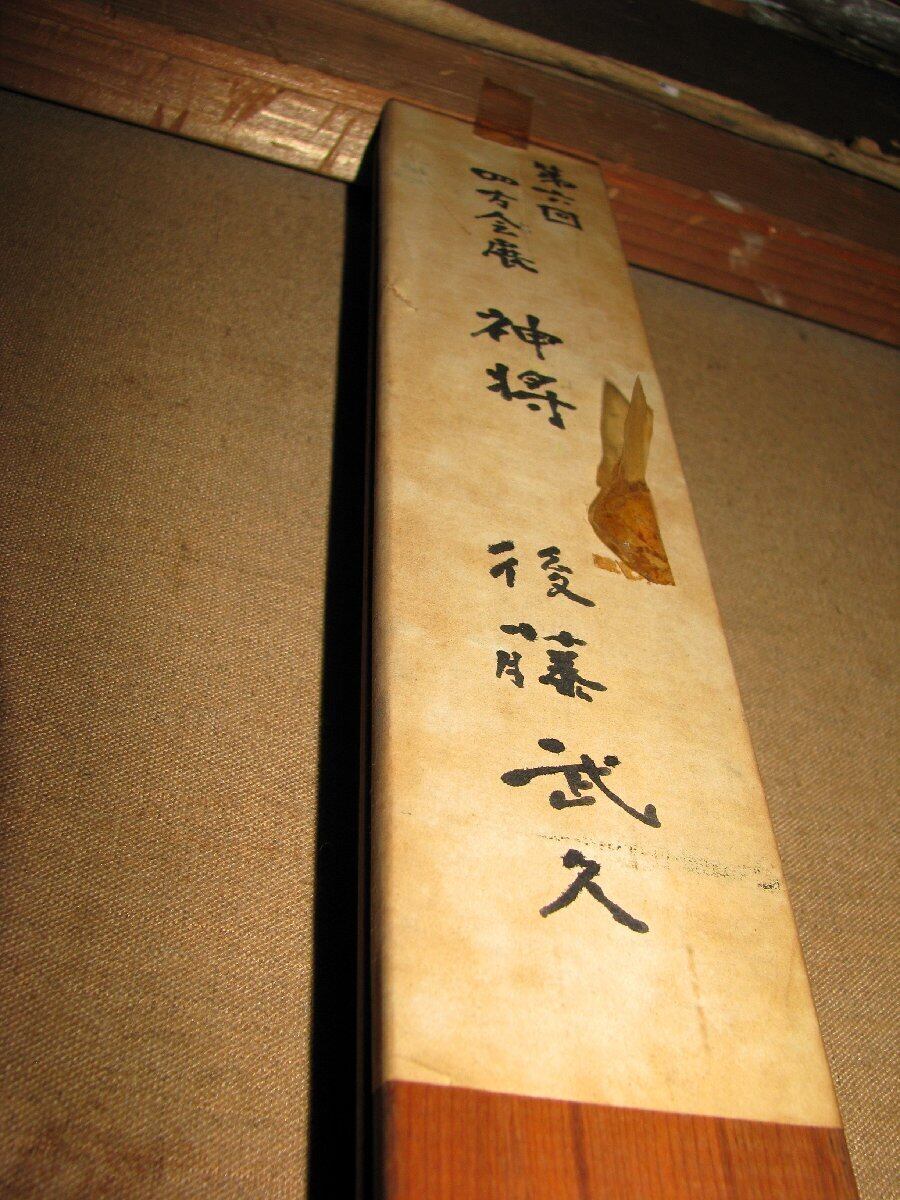 第六回
四方会展 神将 後藤武久